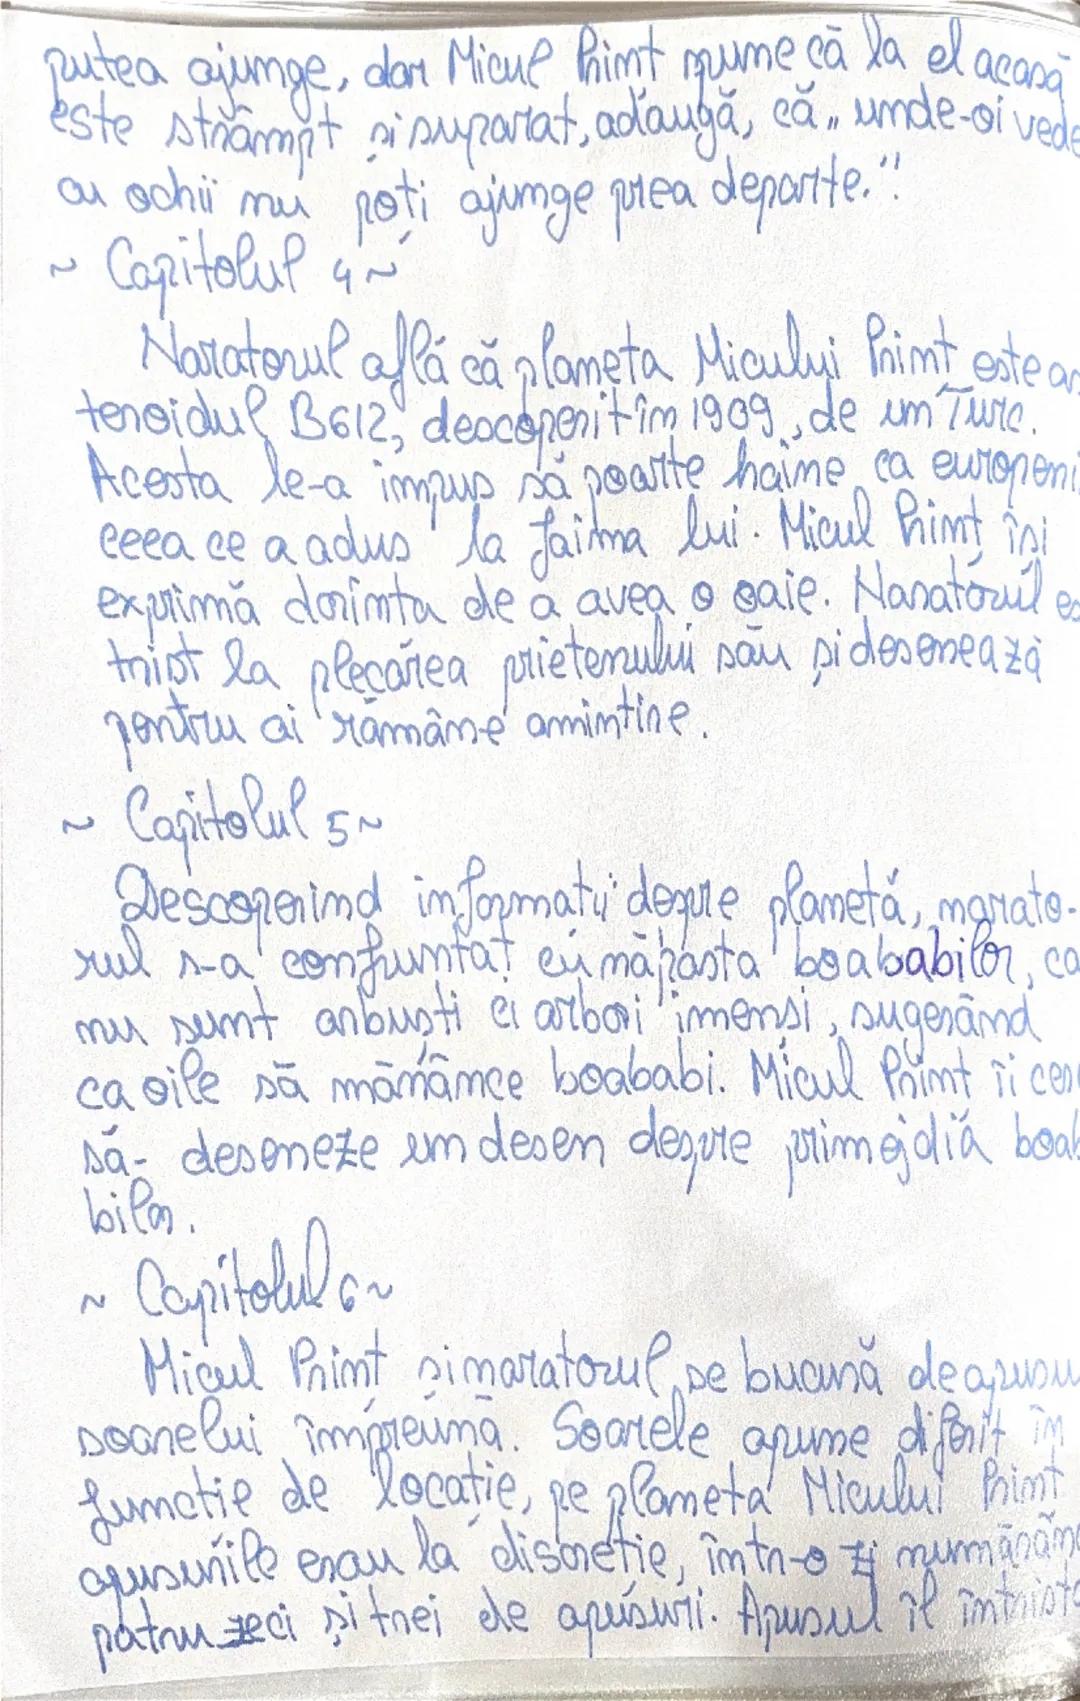 putea ajunge, dar Micul Prinț spune că la el acasă
este strâmpt și supărat, adaugă, că „unde-oi vede
cu ochii nu poți ajunge prea departe."
~ Capitolul 4 ~
Naratorul află că planeta Micului Prinț este as
teroidul B612, descoperit în 1909, de un Turc.
Acesta le-a impus să poarte haine ca europeni
ceea ce a adus la faima lui. Micul Prinț își
exprimă dorința de a avea o oaie. Naratorul es
trist la plecarea prietenului său și desenează
pentru ai rămâne amintire.
~ Capitolul 5 ~
Descoperind informații despre planetă, narato-
rul s-a confruntat cu năpasta boababilor, ca
nu sunt arbuști ci arbori imenși, sugerând
ca oile să mănânce boababi. Micul Prinț îi cere
să- deseneze un desen despre primejdia boab
bilor.
~ Capitolul 6 ~
Micul Prinț și naratorul se bucură de apusu
soarelui împreună. Soarele apune diferit în
funcție de locație, pe planeta Micului Prinț
apusurile erau la discreție, într-o zi numărân
patru zeci și trei de apusuri. Apusul îl întrista